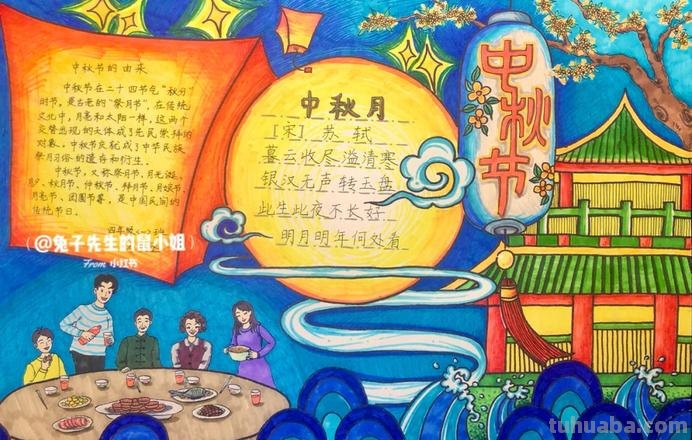 中秋节的由来
中秋节在二十四节气“秋分”
时节,是古老的“祭月节”,在传统
文化中,月亮和太阳一样,这两个
交替出现的天体成了先民崇拜的
对象。中秋节庆就成了中华民族
祭月习俗的遗存和衍生。
中秋节,又称祭月节、月光诞、
月夕、秋月节、仲秋节、拜月节、月娘节、
月亮节、团圆节等,是中国民间的
传统节日。
四年级(一)班
(@兔子先生的鼠小姐)
From 小红书
中秋月
[宋] 苏轼
暮云收尽溢清寒
银汉无声转玉盘
此生此夜不长好
明月明年何处看
中秋节
tuhuaba.com